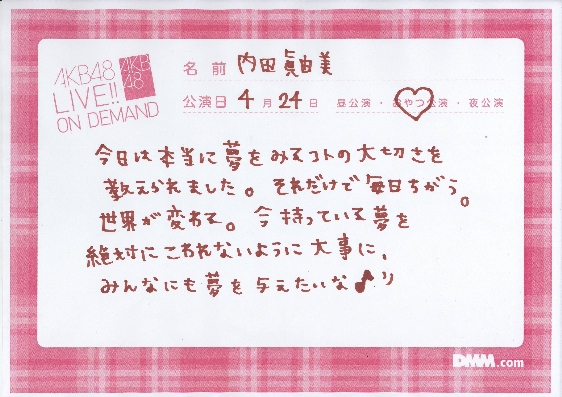 AKB48
LIVE!!
ON DEMAND
AKB
48
名前 内田眞由美
公演日 4月24日 昼公演・おやつ公演・夜公演
今日は本当に夢をみるコトの大切さを
教えられました。それだけで毎日ちがう。
世界が変わる。今持っている夢を
絶対にこわれないように大事に、
みんなにも夢を与えたいな♪
DMM.com